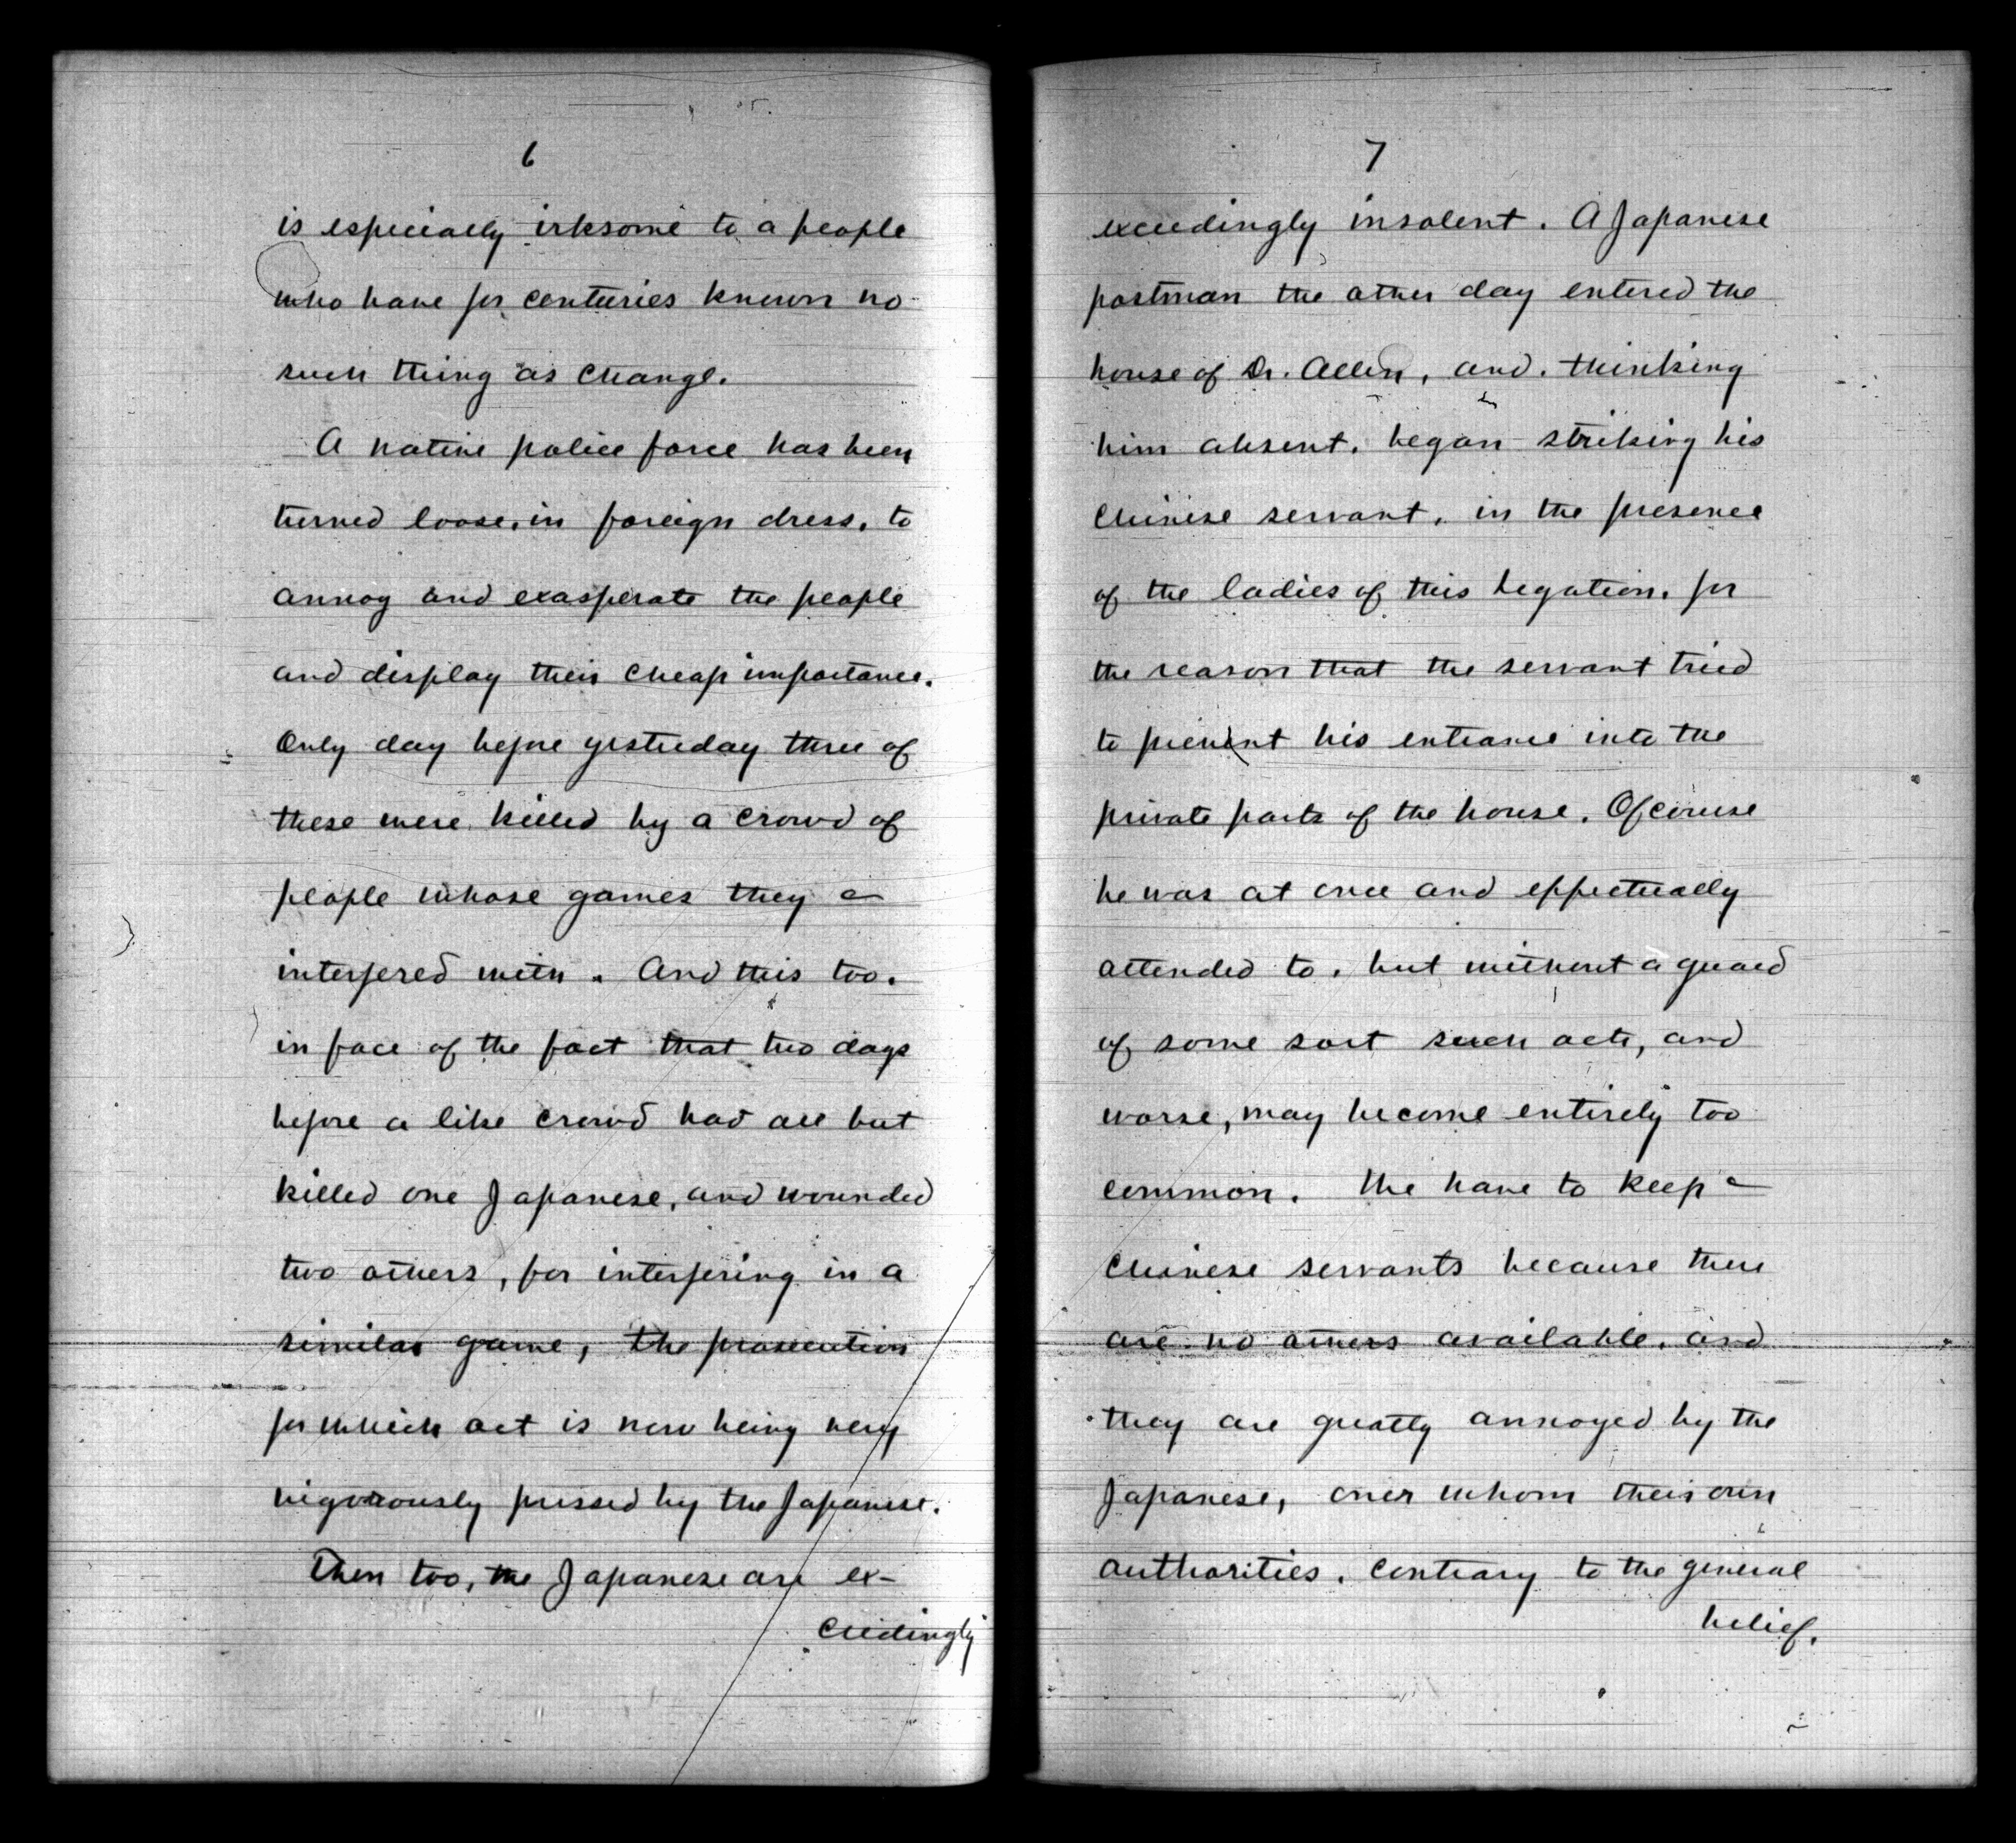 6
is especially irksome to a people
who have for centuries known no
such thing as change.
A native police force has been
turned loose, in foreign dress, to
annoy and exasperate the people
and display their cheap importance.
Only day before yesterday three of
these were killed by a crowd of
people whose games they
interfered with. And this too,
in face of the fact that two days
before a like crowd had all but
killed one Japanese, and wounded
two others, for interfering in a
similar game, the prosecution
for which act is now being very
vigorously pressed by the Japanese.
Then too, the Japanese are ex-
ceedingly
7
exceedingly insolent. A Japanese
postman the other day entered the
house of Dr. Allen, and, thinking
him absent, began striking his
Chinese servant, in the presence
of the ladies of this Legation, for
the reason that the servant tried
to prevent his entrance into the
private parts of the house. Of course
he was at once and effectually
attended to, but without a guard
of some sort such acts, and
worse, may become entirely too
common. We have to keep
Chinese servants because there
are no others available, and
they are greatly annoyed by the
Japanese, over whom their own
authorities, contrary to the general
belief,